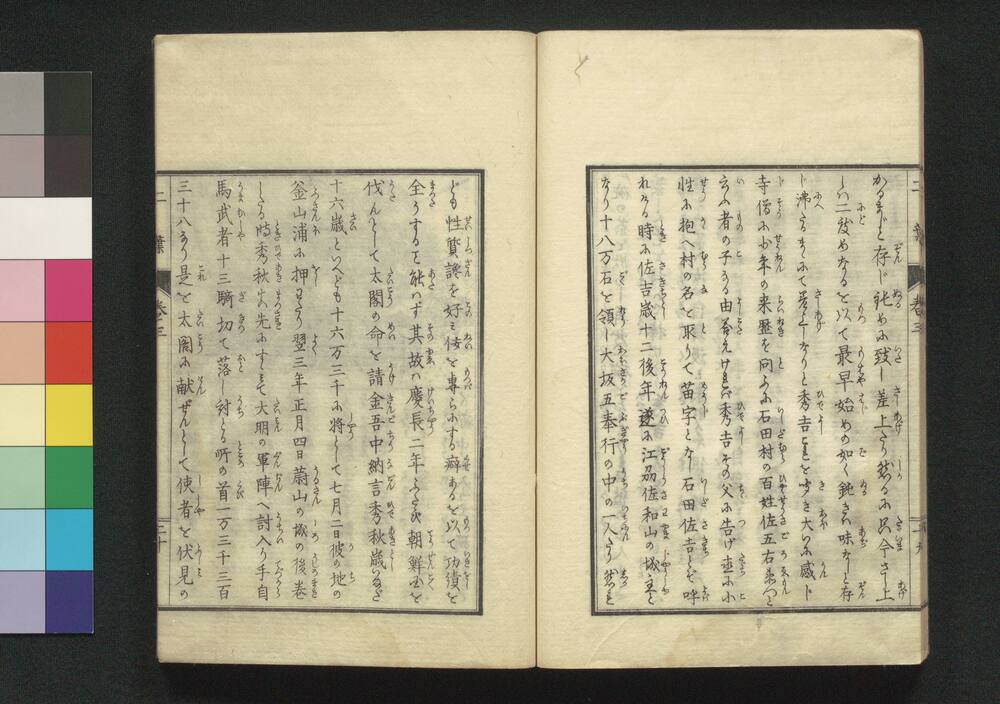 かるまじと存じ社めに致し差上たり然るに只今さし上
しハ二度めなるを以て最早始めの如く鈍き味なしと存
じ沸るまゝにて差上しなりと秀吉是を聞き大いに感じ
寺僧に少年の来歴を問ふに石田村の百姓佐五右衛門と
云ふ者の子なる由答えければ秀吉その父に告げ直に小
性に抱へ村の名を取りて苗字となし石田佐吉とぞ呼
れける時に佐吉歳十二後年遂に江刕佐和山の城主と
なり十八万石を領し大坂五奉行の中の一人たり然れ
ども性質讒を好ミ佞を専らにする癖あるを以て功績を
全うすること能ハず其故ハ慶長二年ふたゝび朝鮮国を
伐んとして太閤の命を請金吾中納言秀秋歳いまだ
十六歳といへども十六万三千に将として七月二日彼の地の
釜山浦に押わたり翌三年正月四日蔚山の城の後巻
したる時秀秋真先にすゝミて大明の軍陣へ討入り手自
馬武者十三騎切て落し討とる所の首一万三千三百
三十八なり是を太閤に献ぜんとして使者を伏見の
巻三
巻三
二十